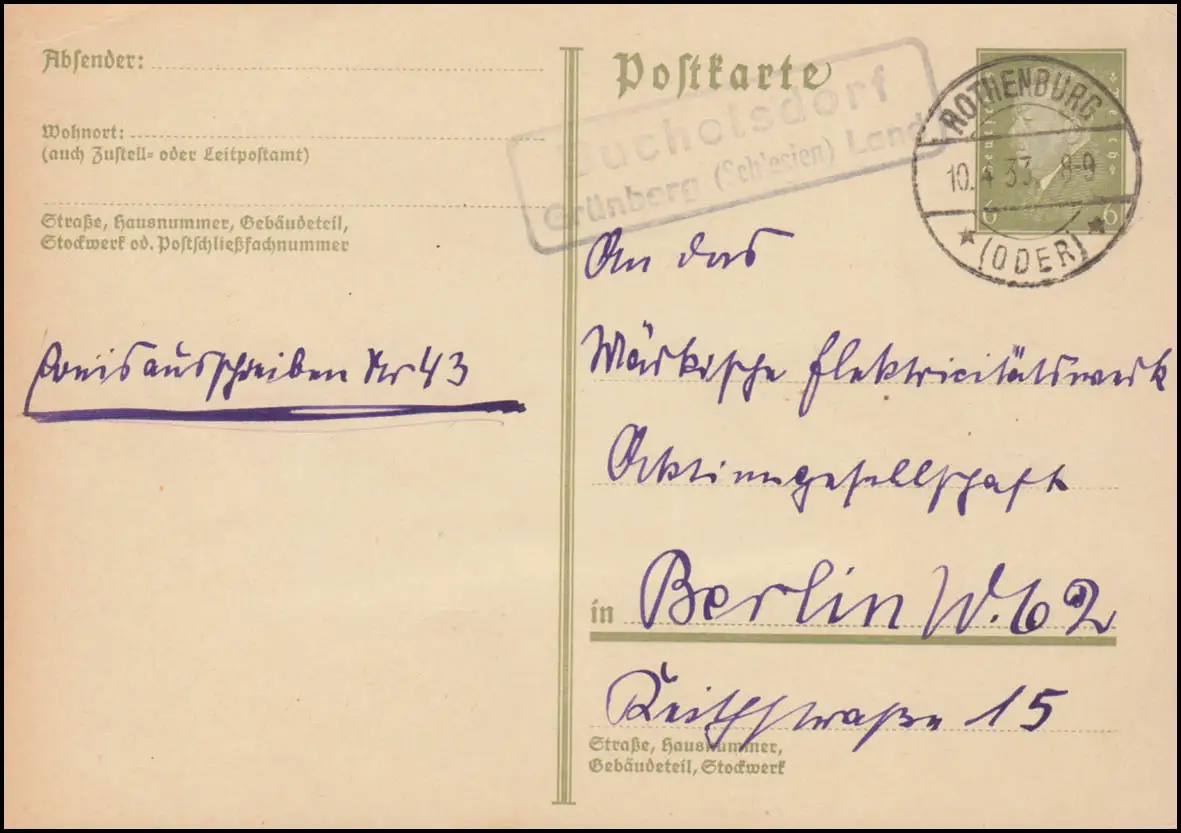 Absender:
Wohnort:
(auch Zustell- oder Leitpostamt)
Straße, Hausnummer, Gebäudeteil,
Stockwerk od. Postschließfachnummer
Preisausschreiben Nr 43
Postkarte
Bucholsdorf
Grünberg (Schlesien) Land
ROTHENBURG
10. 4 33. 8-9
(ODER)
6 6
An das
Märkische Elektricitätswerk
Aktiengesellschaft
in Berlin W. 62
Keithstraße 15
Straße, Hausnummer,
Gebäudeteil, Stockwerk